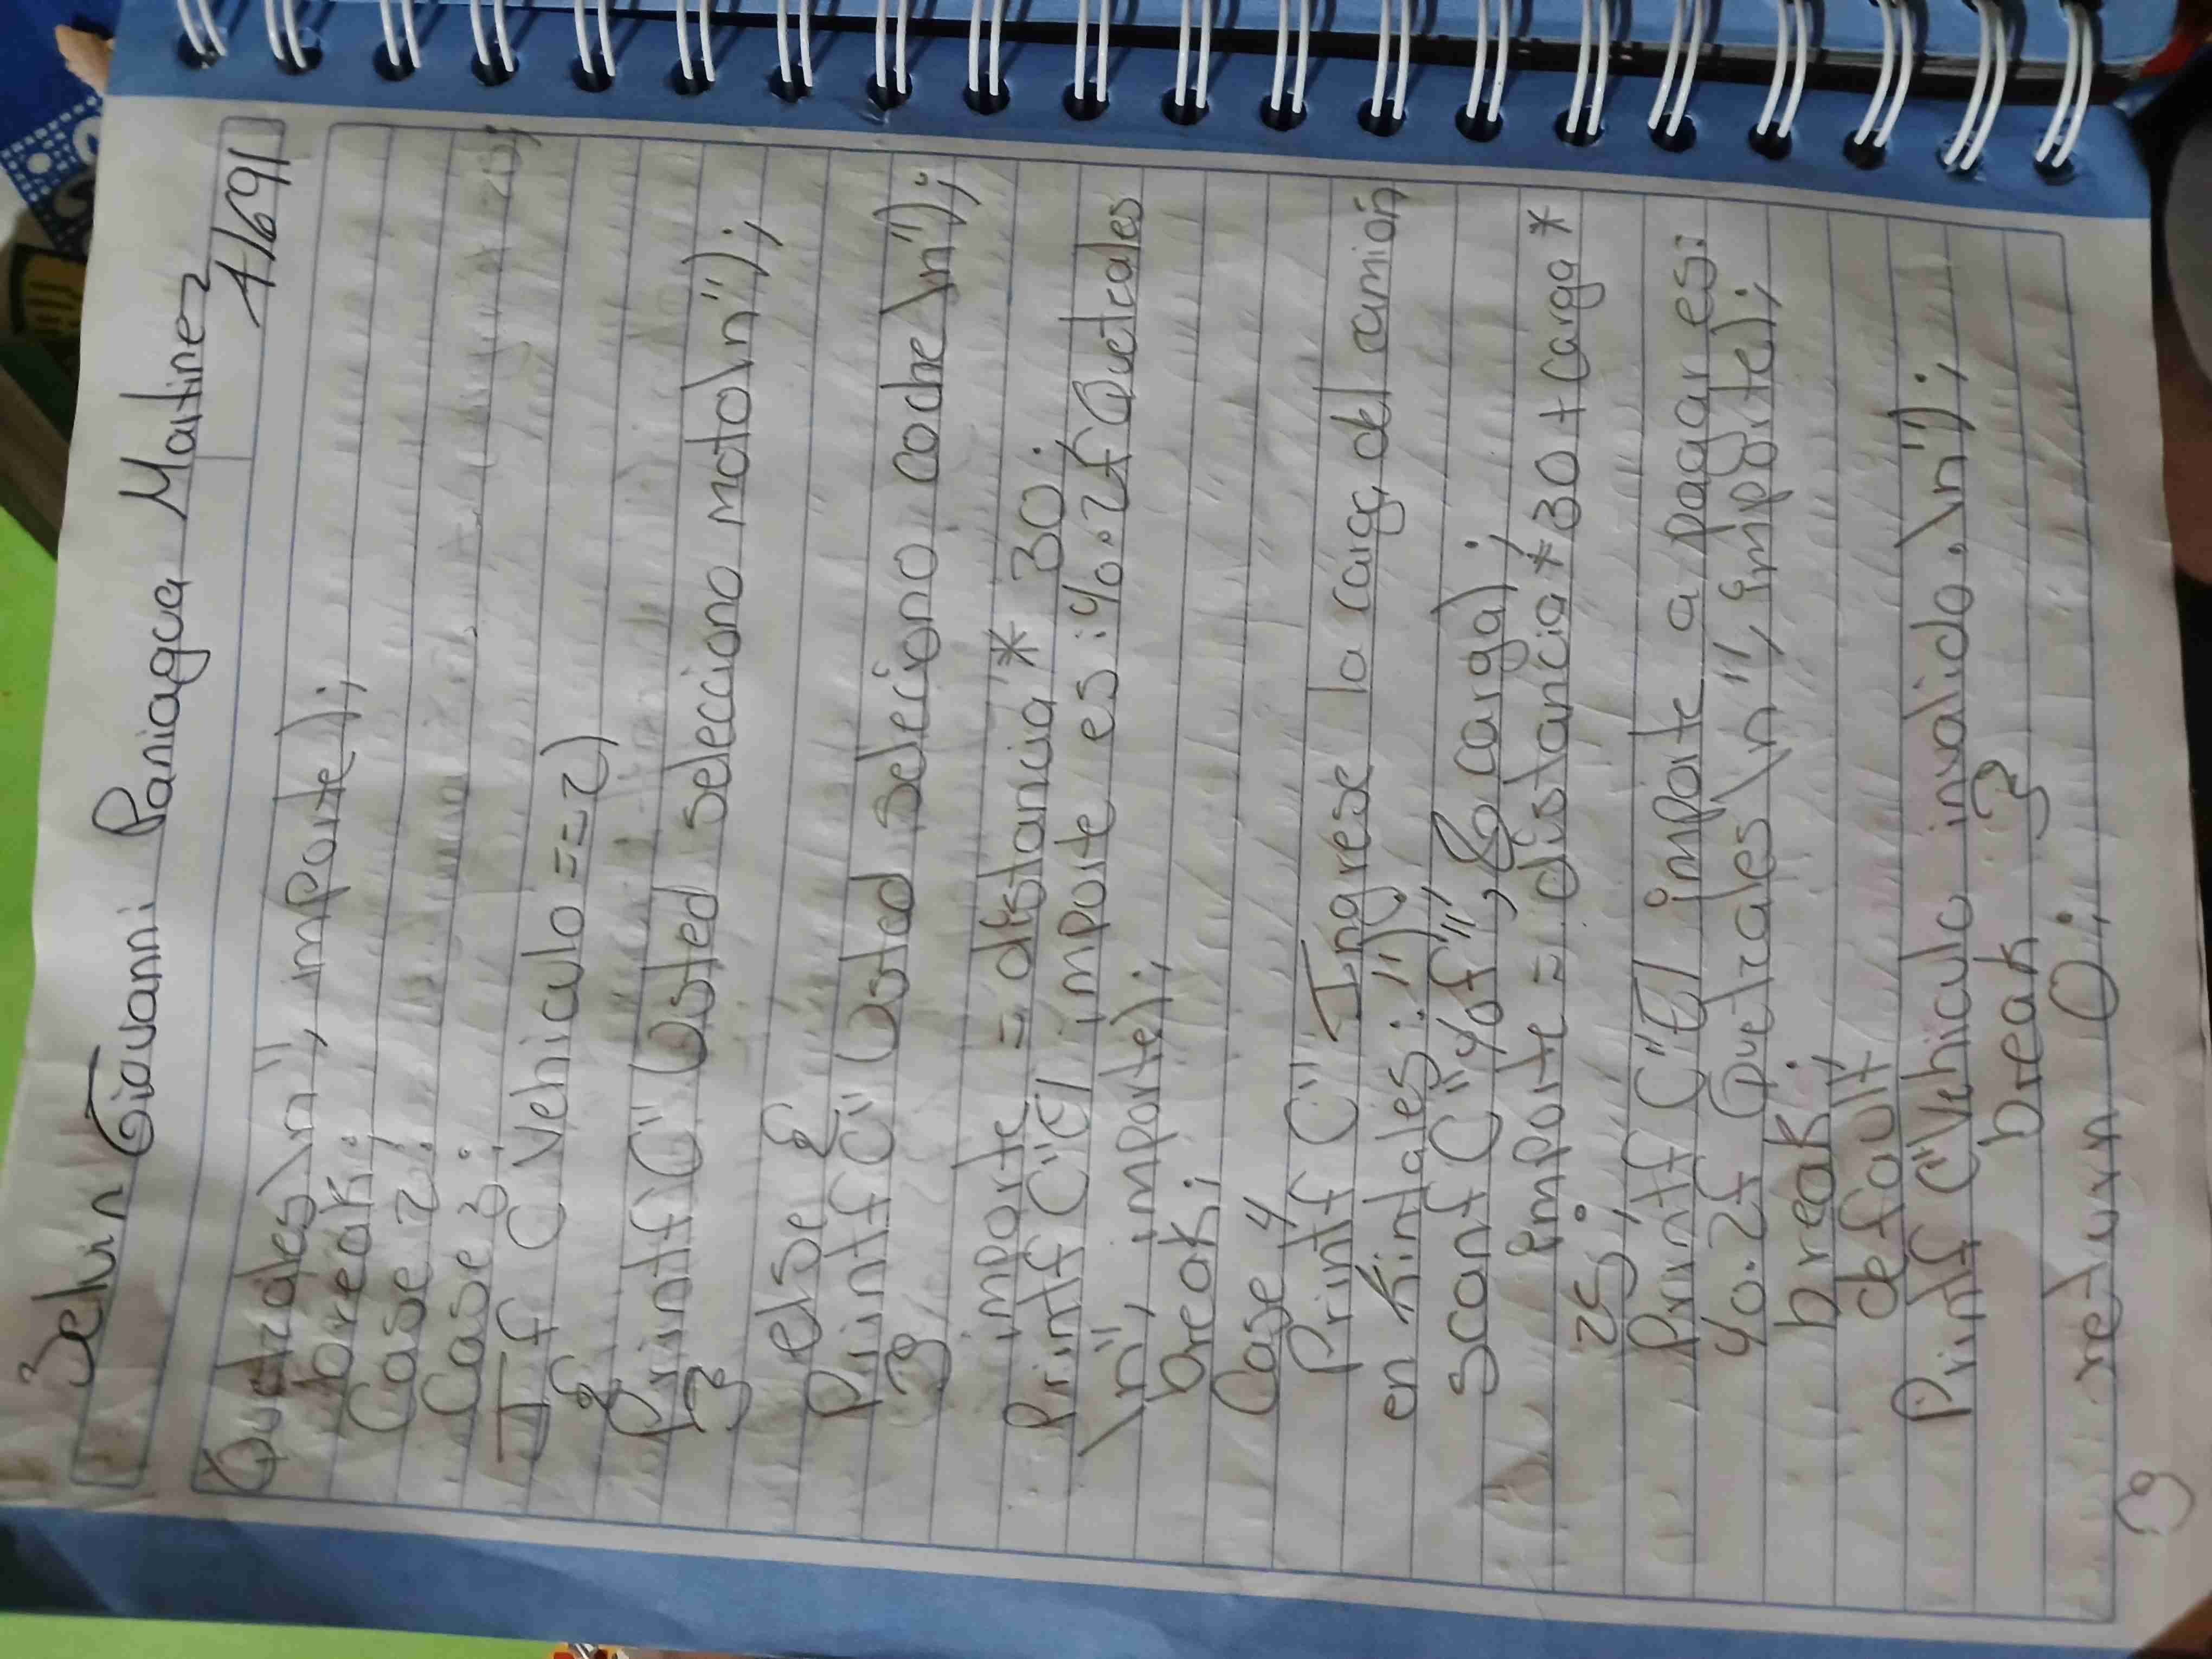 Selvin Giovanni Paniagua Martinez
1/691
Quetzales\n", importe);
break;
Case 2:
Case 3:
If (Vehiculo == 2)
{
Printf(" Usted selecciono moto\n");
}
else {
Printf(" Usted seleciono coche\n");
}
importe = distancia * 30;
Printf("El importe es: %.2f Quetzales
\n", importe);
break;
Case 4
Printf (" Ingrese la carga del camión
en Kintales: ");
Scanf ("%f", & carga);
importe = distancia * 30 + carga *
25;
Printf ("El importe a pagar es:
%.2f Quetzales\n", importe);
break;
default
Printf ("Vehiculo invalido.\n");
break }
return 0;
}